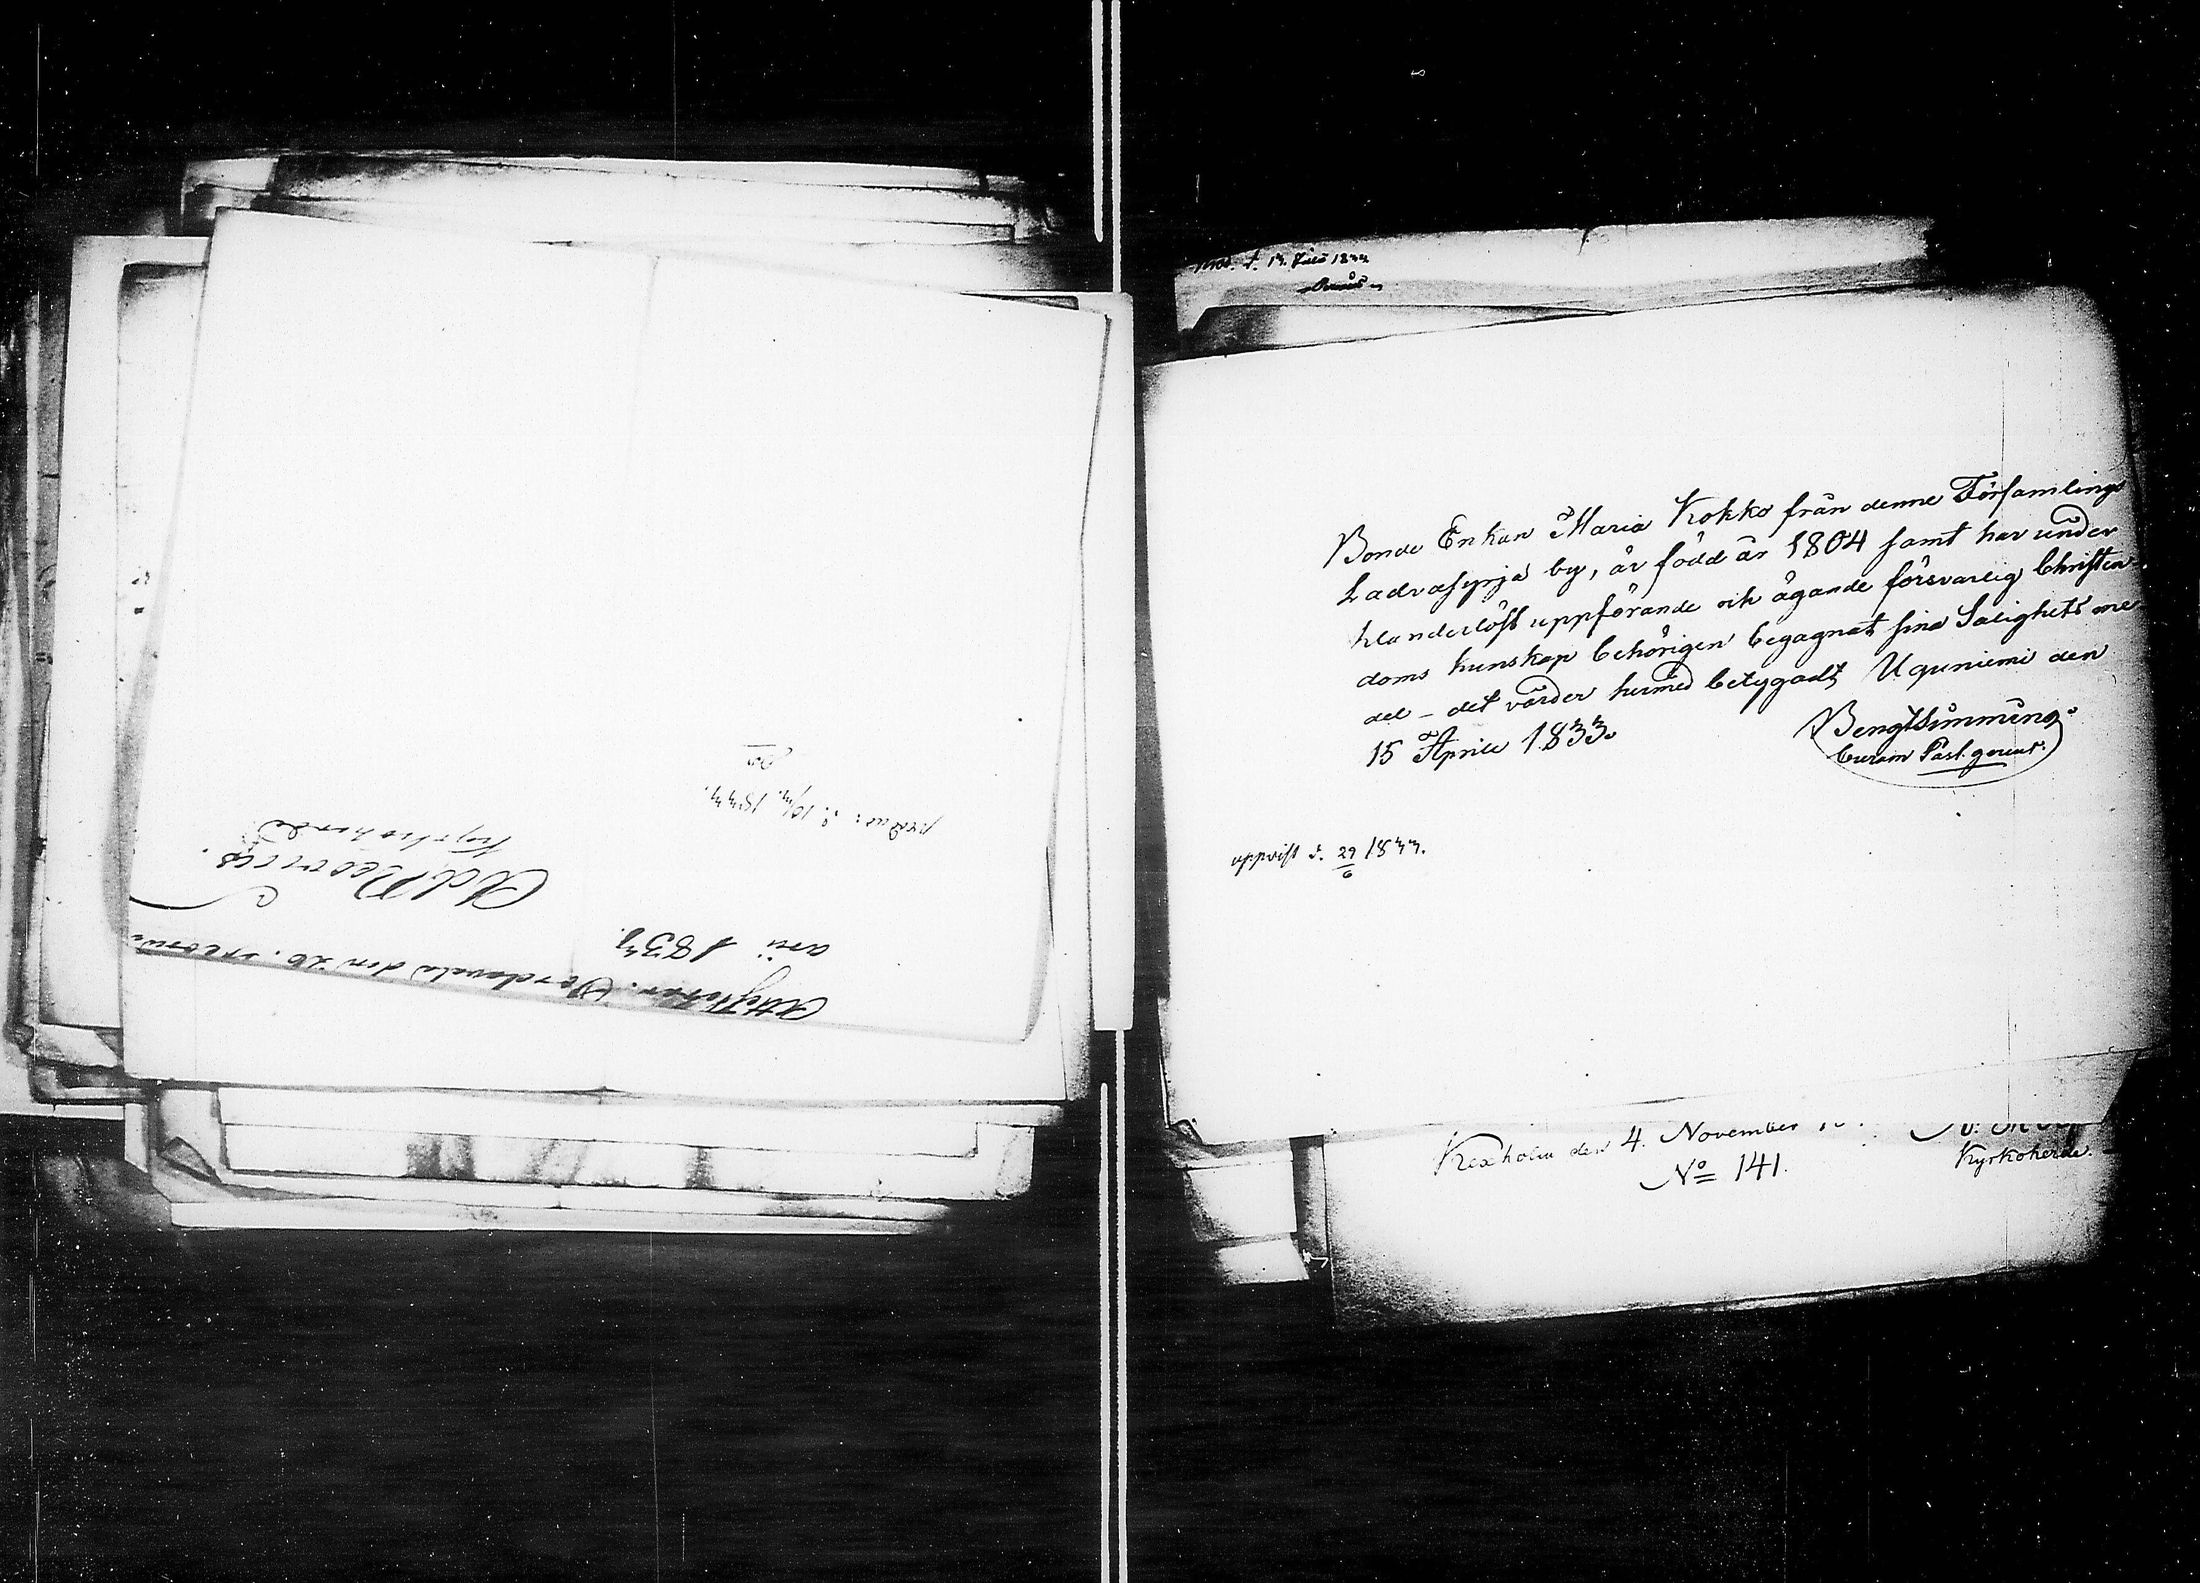 Atesterar. Sordavala den 26.
ari 1833.
Kyrkoherde
1833.
d. 14. Julii 1833
Bonde Enkan Maria Kokko från denne Församlings
by, är född år 1804 samt har under
klanderlöst uppförande och ägande försvarlig Christen-
doms kunskap behörigen begagnat sina Salighets me-
del – det varder hermed betygadt, Uguniemi den
15 Aprill 1833.
Bengt Simming.
Curam Past. gerens.
uppvist d. 29/6 1833.
Kexholm den 4. November
No 141.
Kyrkoherde.